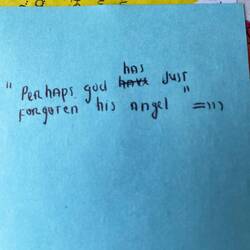 has
"Perhaps god have just
forgoren his angel" =)))